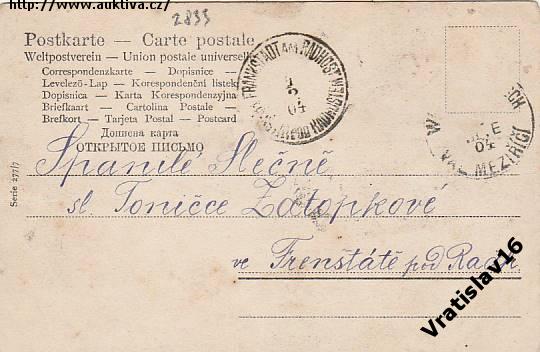 http://www.auktiva.cz/
2833
Postkarte — Carte postale
Weltpostverein — Union postale universelle
Correspondenzkarte — Dopisnice —
Levelező-Lap — Korespondenční lístek
Dopisnica — Karta Korespondenzyjna
Briefkaart — Cartolina Postale —
Brefkort — Tarjeta Postal — Postcard
Дописна карта
ОТКРЫТОЕ ПИСЬМО
FRANKSTADT AM RADHOST
2
04
E
04
MEZIŘÍČÍ
Serie 277/7
Spanilé Slečně
sl. Toničce Zátopkové
ve Frenštátě pod Radh
Vratislav16